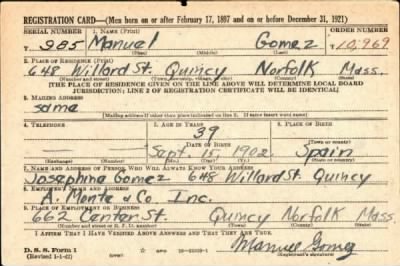 REGISTRATION CARD—(Men born on or after February 17, 1897 and on or before December 31, 1921)
SERIAL NUMBER 1. NAME (Print) ORDER NUMBER
T 985 Manuel Gomez T 10,969
(First) (Middle) (Last)
2. PLACE OF RESIDENCE (Print)
648 Willard St. Quincy Norfolk Mass.
(Number and street) (Town, township, village, or city) (County) (State)
[THE PLACE OF RESIDENCE GIVEN ON THE LINE ABOVE WILL DETERMINE LOCAL BOARD
JURISDICTION; LINE 2 OF REGISTRATION CERTIFICATE WILL BE IDENTICAL]
3. MAILING ADDRESS
same
[Mailing address if other than place indicated on line 2. If same insert word same]
4. TELEPHONE 5. AGE IN YEARS 6. PLACE OF BIRTH
39
DATE OF BIRTH
Sept. 15, 1902 Spain
(Exchange) (Number) (Mo.) (Day) (Yr.) (State or country)
7. NAME AND ADDRESS OF PERSON WHO WILL ALWAYS KNOW YOUR ADDRESS
Josephina Gomez 648 Willard St. Quincy
8. EMPLOYER'S NAME AND ADDRESS
A. Monte & Co Inc.
9. PLACE OF EMPLOYMENT OR BUSINESS
662 Center St. Quincy Norfolk Mass
(Number and street or R. F. D. number) (Town) (County) (State)
I AFFIRM THAT I HAVE VERIFIED ABOVE ANSWERS AND THAT THEY ARE TRUE.
D. S. S. Form 1
(Revised 1-1-42) GPO Manuel Gomez